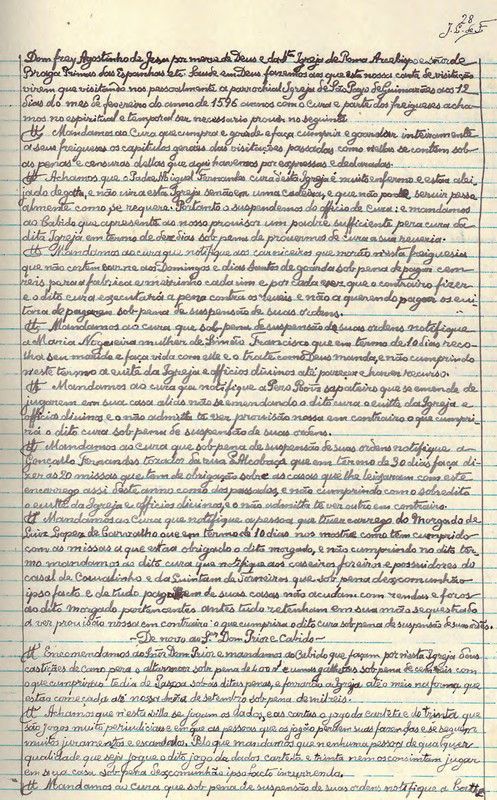 28
J. L. de F.
Dom frey Agostinho de Jesu por merce de Deus e da Sta Igreja de Roma Arcebispo e sñor de
Braga Primas das Espanhas etc. Saude em Deus fazemos aos que esta nossa carta de visitação
virem que visitando nos pessoalmente a parrochial Igreja de São Payo de Guimarães aos 12
dias do mes de fevereiro do anno de 1596 annos com o Cura e parte dos freigueses acha-
mos no espiritual e temporal ser necessario prover no seguinte
It. Mandamos ao Cura que cumpra e goarde e faça cumprir e goardar inteiramente
a seus freigueses os capitulos geraes das visitações passadas como nelles se contem sob
as penas e censuras dellas que aqui havemos por expressas e declaradas.
It. Achamos que o Padre Miguel Fernandes cura desta Igreja é muito enfermo e esta alei-
jado de gota, e não vir a esta Igreja senão em uma cadeira, e que não pode servir pesso-
almente como se requere. Portanto o suspendemos do officio de Cura: e mandamos
ao Cabido que apresente ao nosso provisor um padre sufficiente pera cura da
dita Igreja em termo de dez dias sob pena de provermos de cura a sua reveria.
It. Mandamos ao cura que notifique aos carniceiros que morão nesta freiguesia
que não cortem carne aos Domingos e dias Santos de goarda sob pena de pagar cem
réis para a fabrica e meirinho cada um e por cada vez que o contrario fizer
e o dito cura executará a pena contra os reveis e não a querendo pagar os evi-
tara de sob pena de suspensão de suas ordens.
It. Mandamos ao cura que sob pena de suspensão de suas ordens notifique
a Maria Nogueira mulher de Simão Francisco que em termo de 10 dias reco-
lha seu marido e faça vida com este e o trate como Deus manda, e não cumprindo
neste termo a evita da Igreja e officios divinos até pareça e haver recurso.
It. Mandamos ao cura que notifique a Pero sapateiro que se emende de
jugarem em sua casa alias não se emendando o dito cura o evite da Igreja e
officios divinos e o não admitta te ver provisão nossa em contrairo o que cumpri-
rá o dito cura sob pena de suspensão de suas ordens.
It. Mandamos ao Cura que sob pena de suspensão de suas ordens notifique a
Gonçallo Fernandes tozador da rua d'Alcobaça que em termo de 30 dias faça di-
zer as 20 missas que tem de obrigação sobre as casas que lhe leixaram com este
encarrego assi deste anno como dos passados e não cumprindo como sobredito
o evite da Igreja e officios divinos, e o não admitta te ver outro em contrario.
It. Mandamos ao Cura que notifique a pessoa que tiver carrego do Morgado de
Luiz Lopez de Carvalho que em termo de 10 dias nos mostre como tem cumprido
com as missas a que estar obrigado o dito mogado, e não cumprindo no dito ter-
mo mandamos ao dito cura que notifique aos caseiros foreiros e possuidores do
casal de e da Quintam de que sob pena d'excomunhão
ipso facto e de tudo de suas casas não acudam com rendas e foros
ao dito Morgado pertencentes antes tudo retenham em sua mão sequestrado
a ver provisão nossa em contrairo: o que cumprira o dito cura sob pena de suspensão de suas ordẽs.
~ De novo ao Sr. Dom Prior e Cabido ~
It. Encomendamos ao Snor Dom Prior e mandamos ao Cabido que façam por nesta Igreja dous
castiçaes de cano pera o altar mor sob pena de e umas galhetas sob pena de com
o que cumprirão te dia de Pascoa sob as ditas penas, e forrarão a Igreja até o meio na forma que
estão começada até nossa Snõra de setembro sob pena de mil reis.
It. Achamos que n'esta villa se jogam os dados, e as cartas o jogo da cartete e de trinta que
são jogos muito perjudiciaes e em que as pessoas que os jogão perdem suas fazendas e se seguem
muitos juramentos e escandalos. Pelo que mandamos que nenhuma pessoa de qualquer
qualidade que seja jogue o dito jogo de dados cartete e trinta nem os consintam jugar
em sua casa sob pena d'excomunhão ipso facto incurrenda.
It. Mandamos ao cura que sob pena de suspensão de suas ordens notifique a